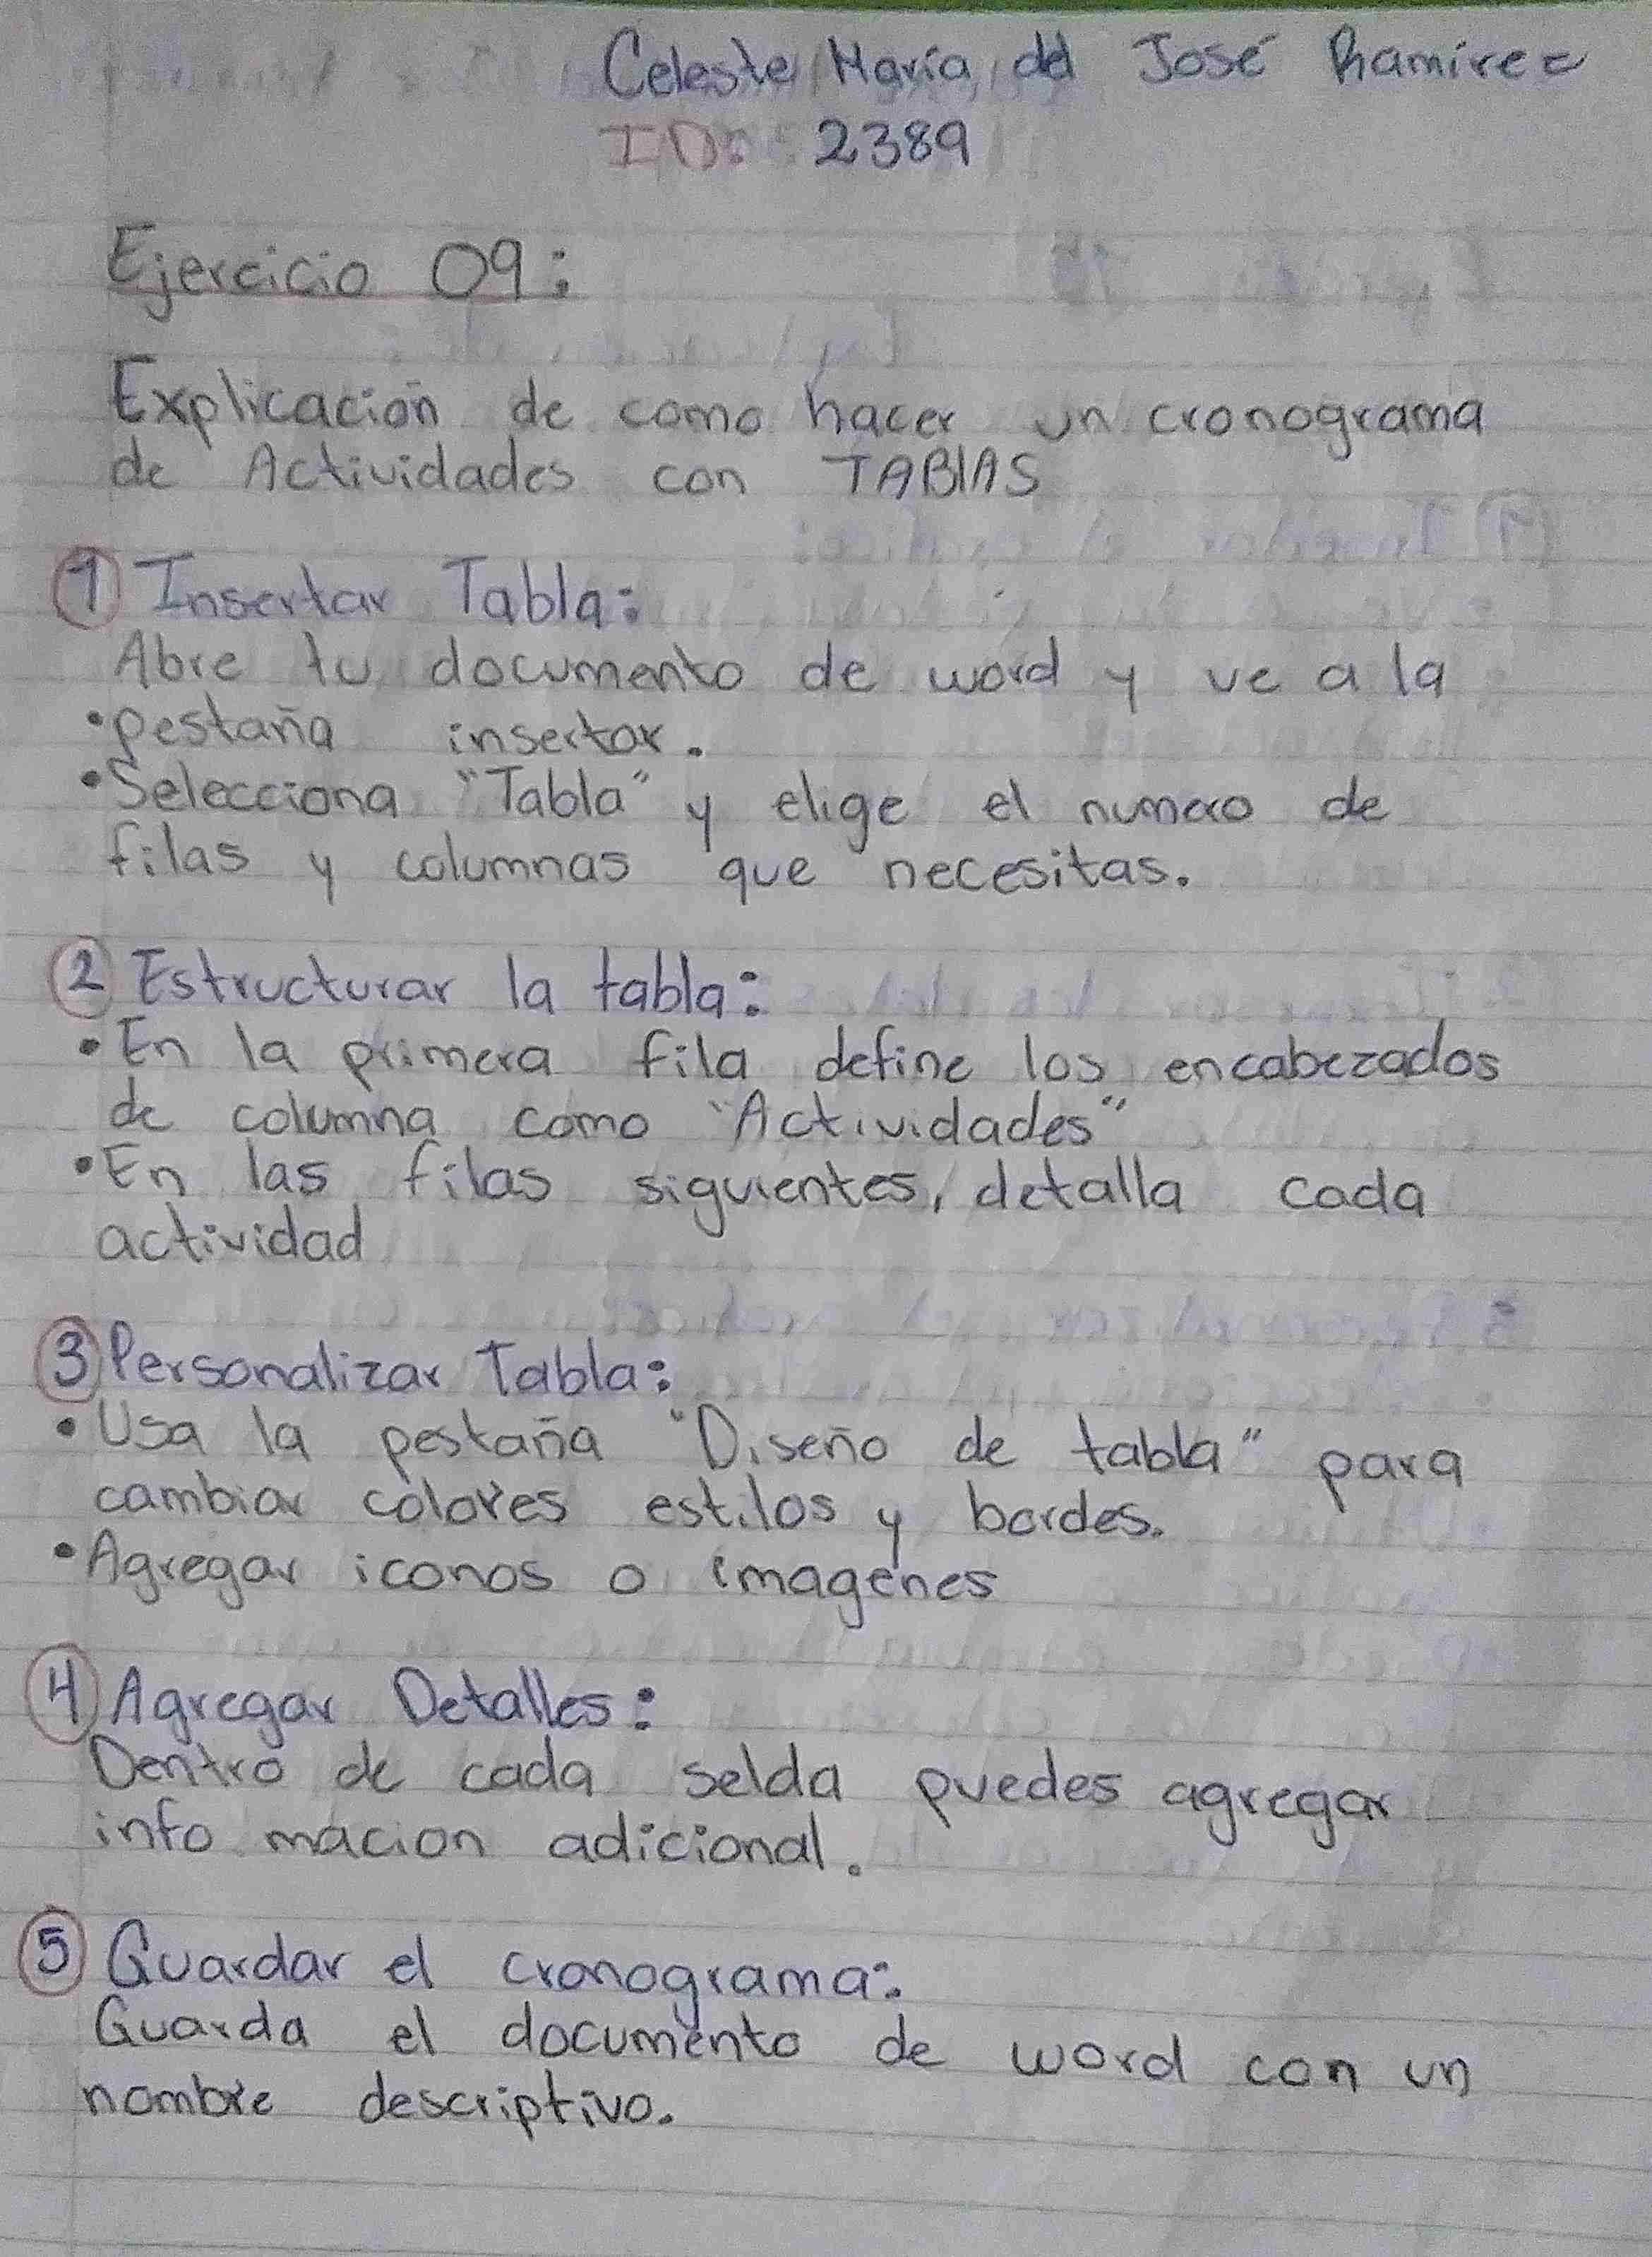 Celeste María del José Ramírez
ID: 2389
Ejercicio 09:
Explicación de como hacer un cronograma
de Actividades con TABlAS
1 Insertar Tabla:
Abre tu documento de word y ve a la
• pestaña insertar.
• Selecciona "Tabla" y elige el numero de
filas y columnas que necesitas.
2 Estructurar la tabla:
• En la primera fila define los encabezados
de columna como "Actividades"
• En las filas siguientes, detalla cada
actividad
3 Personalizar Tabla:
• Usa la pestaña "Diseño de tabla" para
cambiar colores estilos y bordes.
• Agregar iconos o imagenes
4 Agregar Detalles:
Dentro de cada selda puedes agregar
info macion adicional.
5 Guardar el cronograma:
Guarda el documento de word con un
nombre descriptivo.